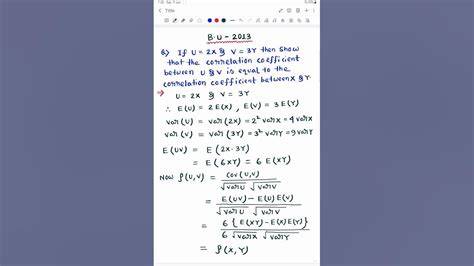 Title
B.U - 2013
Q) If U = 2X & V = 3Y then show
that the correlation coefficient
between U & V is equal to the
correlation coefficient between X & Y.
→ U = 2X & V = 3Y
∴ E(U) = 2E(X), E(V) = 3E(Y)
Var(U) = Var(2X) = 2² VarX = 4 VarX
Var(V) = Var(3Y) = 3² VarY = 9 VarY
E(UV) = E(2X·3Y)
= E(6XY) = 6 E(XY)
Now ρ(U,V) = Cov(U,V) / √VarU √VarV
= E(UV) - E(U)E(V) / √VarU √VarV
= 6{E(XY) - E(X)E(Y)} / 6 √VarX √VarY
= ρ(X,Y)